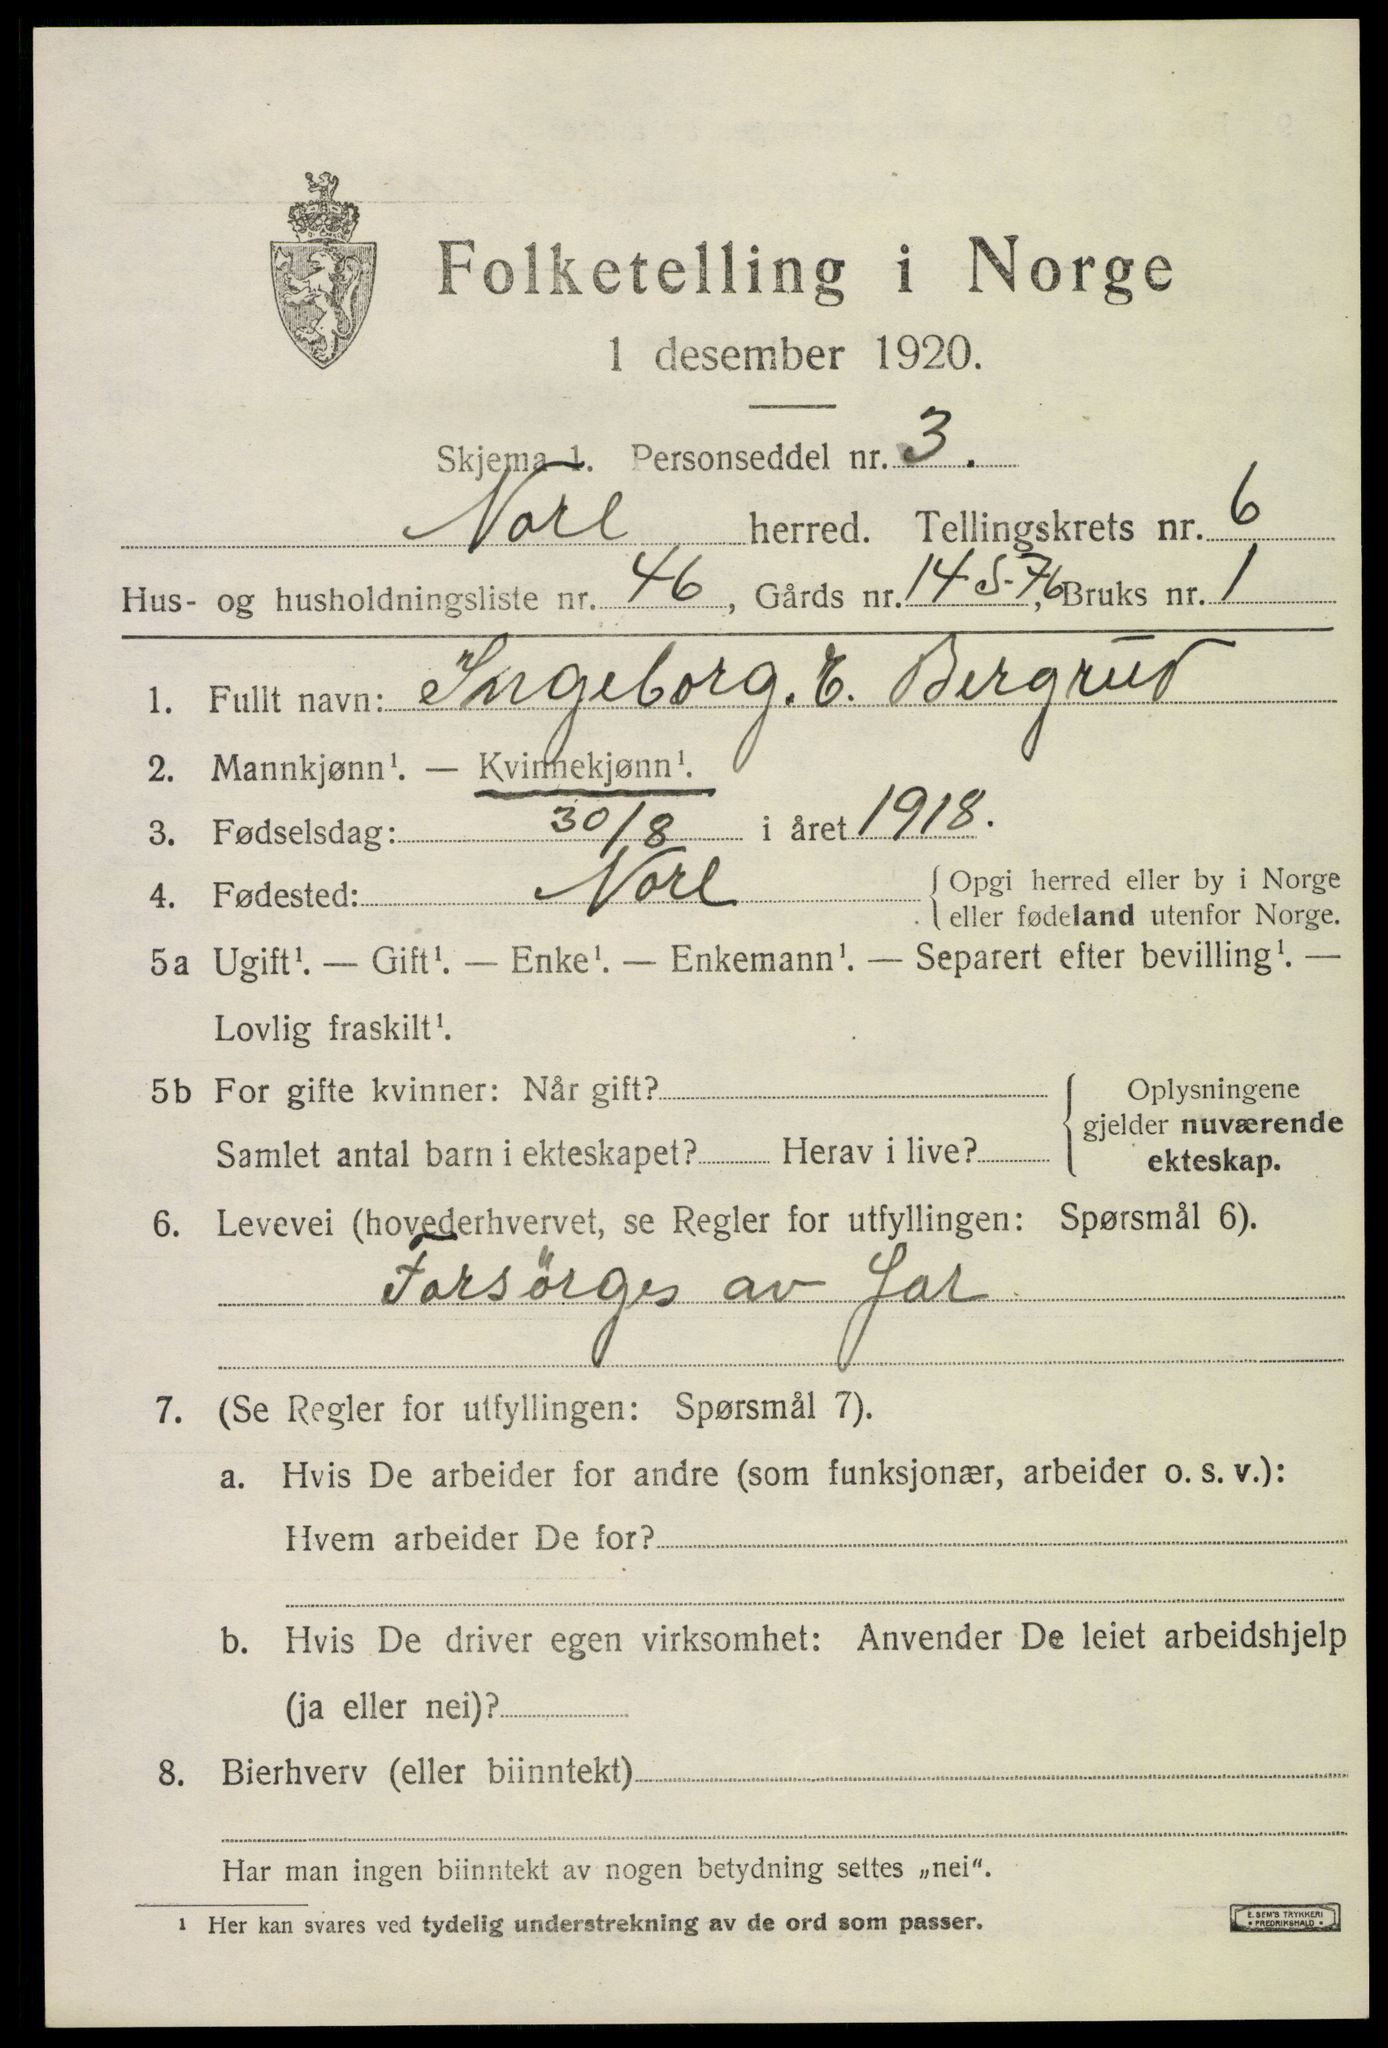 Folketelling i Norge
1 desember 1920.
Skjema 1. Personseddel nr. 3.
Nore herred. Tellingskrets nr. 6
Hus- og husholdningsliste nr. 46, Gårds nr. 14 S-76, Bruks nr. 1
1. Fullt navn: Ingeborg. E. Bergrud
2. Mannkjønn¹. — Kvinnekjønn¹.
3. Fødselsdag: 30/8 i året 1918.
4. Fødested: Nore { Opgi herred eller by i Norge
eller fødeland utenfor Norge.
5a Ugift¹. — Gift¹. — Enke¹. — Enkemann¹. — Separert efter bevilling¹. —
Lovlig fraskilt¹.
5b For gifte kvinner: Når gift? { Oplysningene
gjelder nuværende
Samlet antal barn i ekteskapet? Herav i live? ekteskap.
6. Levevei (hovederhvervet, se Regler for utfyllingen: Spørsmål 6).
Forsörges av far
7. (Se Regler for utfyllingen: Spørsmål 7).
a. Hvis De arbeider for andre (som funksjonær, arbeider o. s. v.):
Hvem arbeider De for?
b. Hvis De driver egen virksomhet: Anvender De leiet arbeidshjelp
(ja eller nei)?
8. Bierhverv (eller biinntekt)
Har man ingen biinntekt av nogen betydning settes „nei“.
¹ Her kan svares ved tydelig understrekning av de ord som passer.
E. SEM'S TRYKKERI
• FREDRIKSHALD •